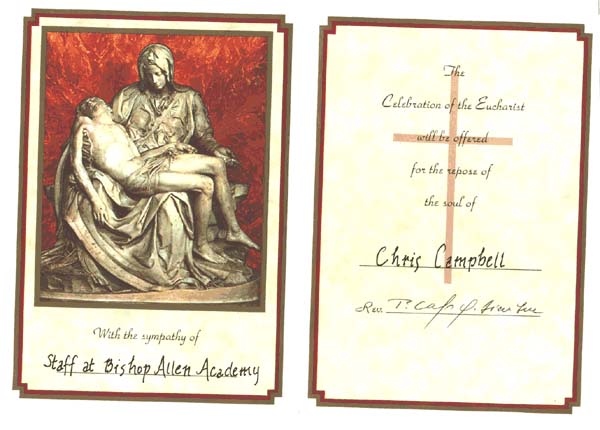 With the sympathy of
Staff at Bishop Allen Academy
The
Celebration of the Eucharist
will be offered
for the repose of
the soul of
Chris Campbell
Rev.